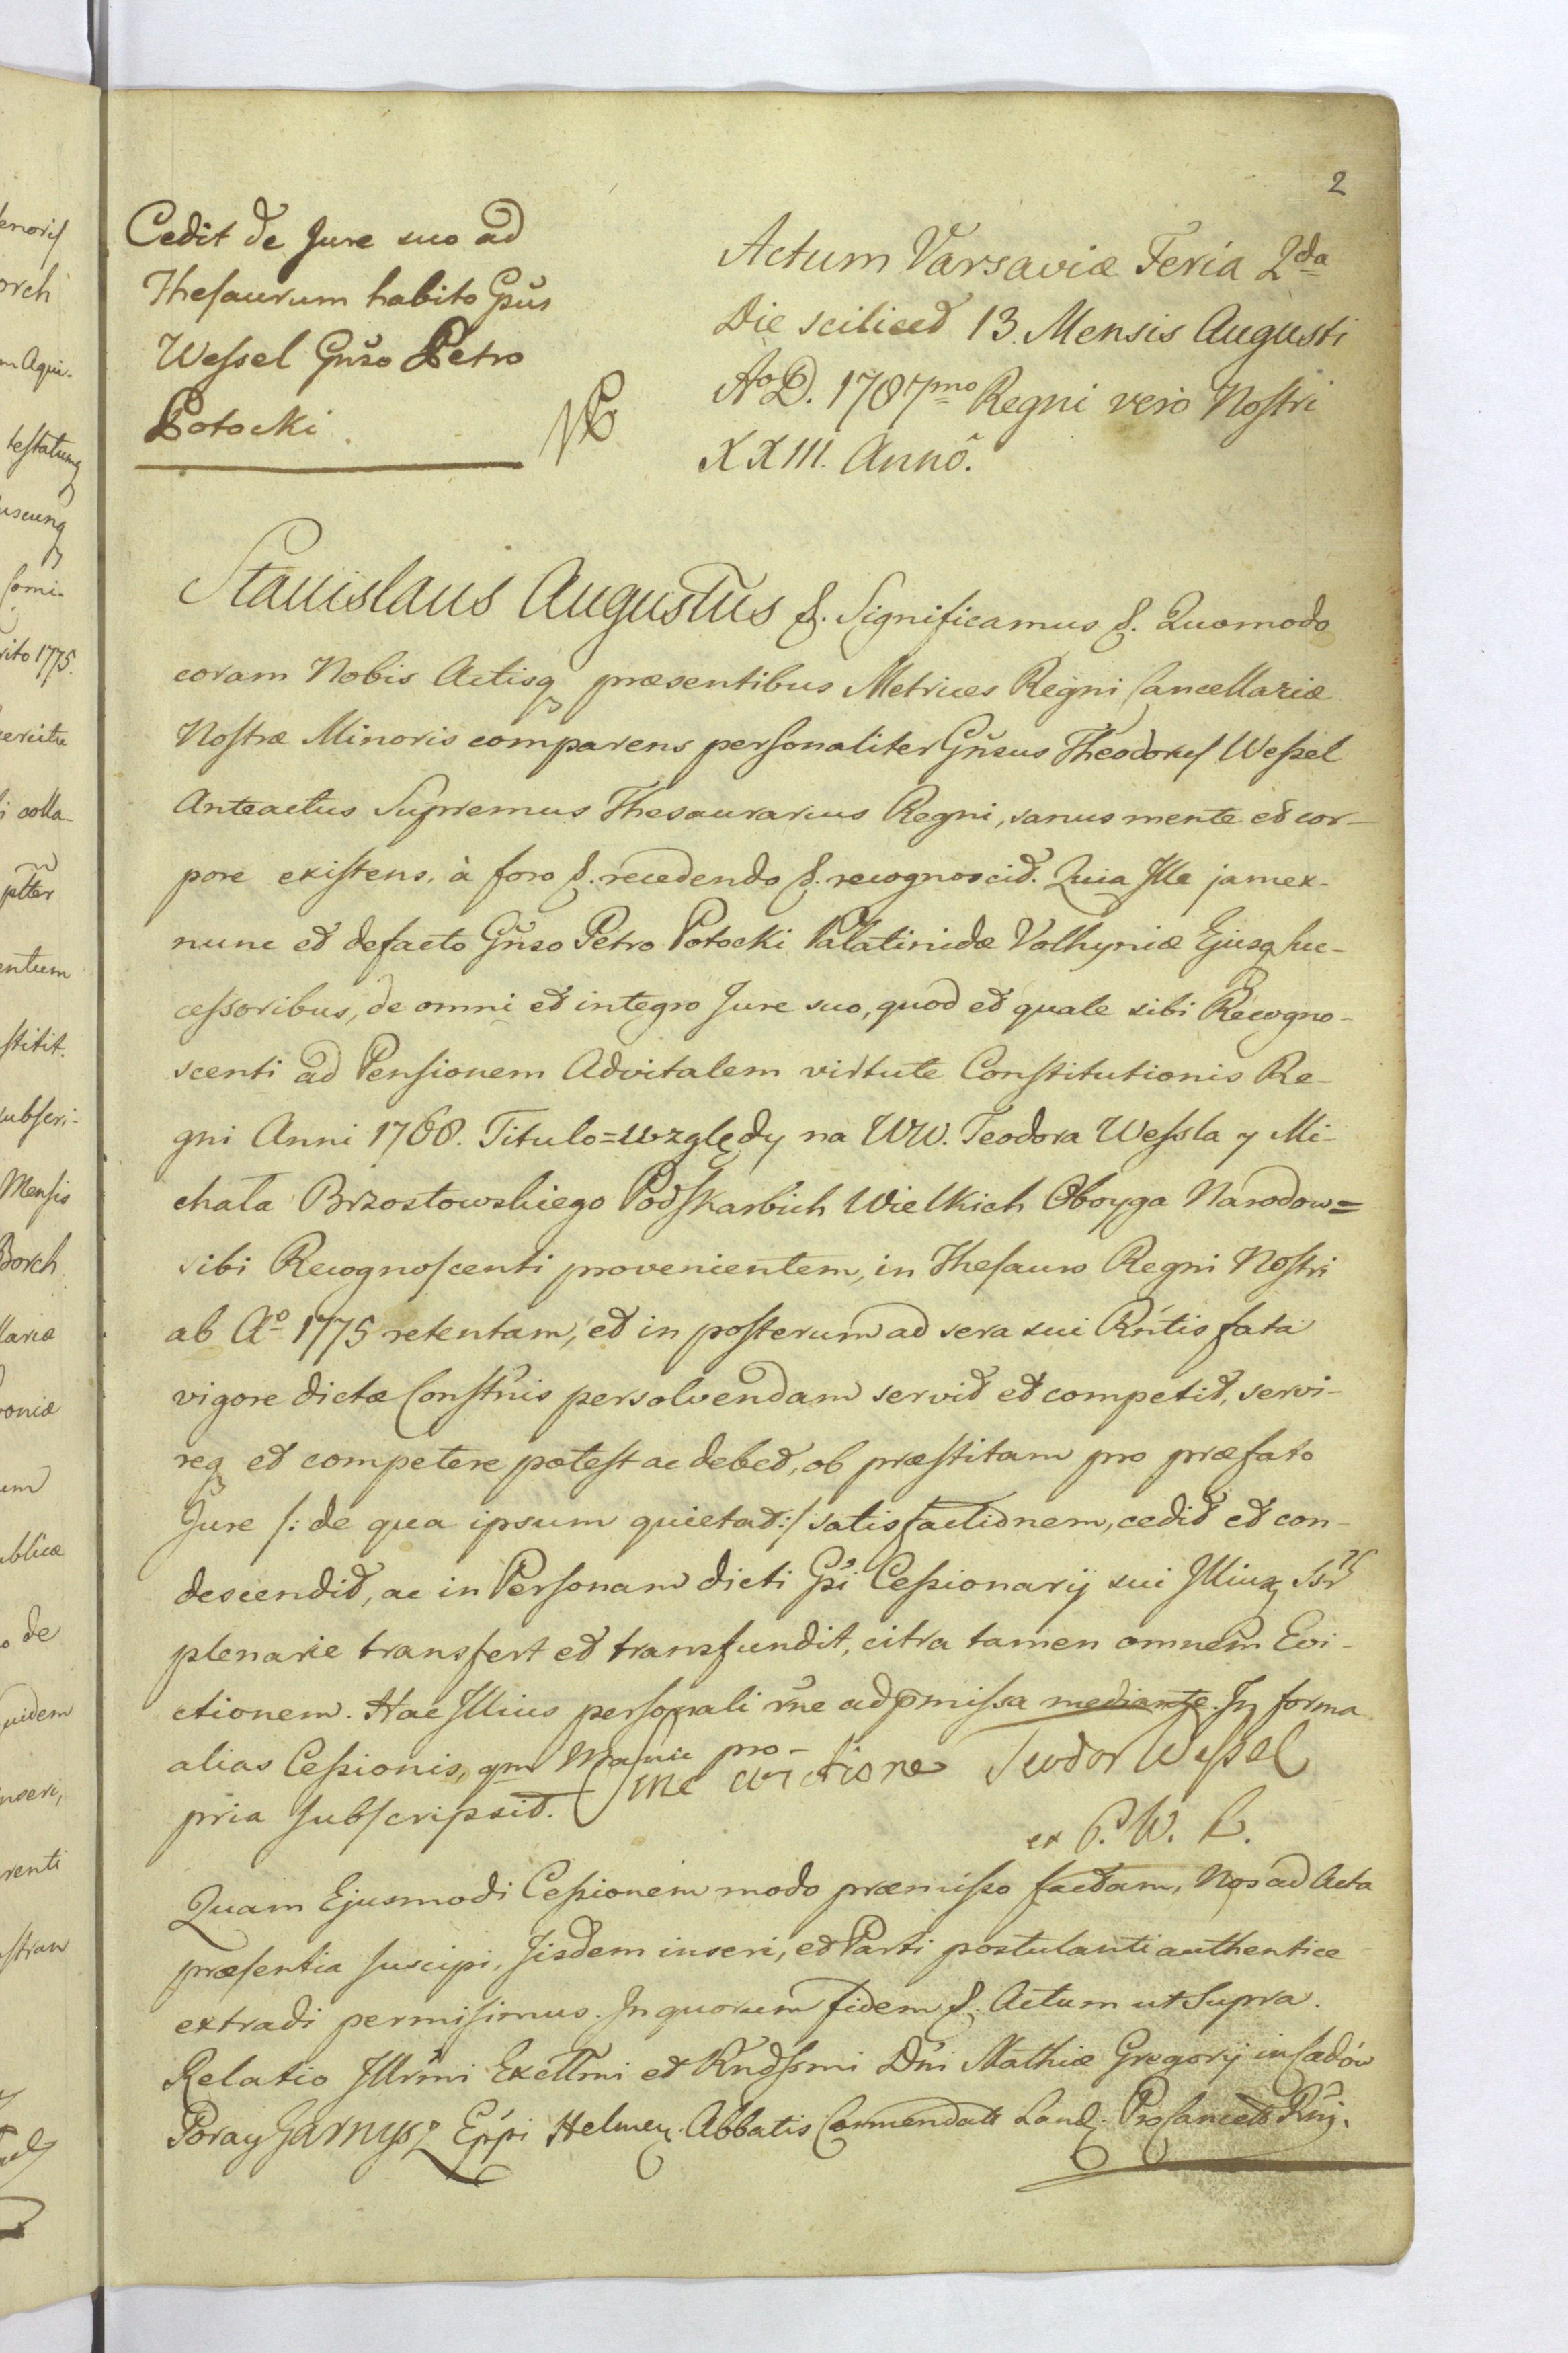 2
Cedit de Jure suo ad
Thesaurum habito Gñsus
Wessel Gñso Petro
Potocki.
Actum Varsaviæ Feria 2da
Die scilicet 13. Mensis Augusti
Ao D. 1787mo Regni vero Nostri
XXIII. Annô.
Stanislaus Augustus &. Significamus &. Quomodo
coram Nobis Actisq præsentibus Metrices Regni Cancellariæ
Nostræ Minoris comparens personaliter Gñsus Theodorus Wessel
Anteactus Supremus Thesaurarius Regni, sanus mente et cor-
pore existens, à foro &. recedendo &. recognoscit. Quia Ille jam ex-
nunc et defacto Gñso Petro Potocki Palatinidæ Volhyniæ Ejusq suc-
cessoribus, de omni et integro Jure suo, quod et quale sibi Recogno-
scenti ad Pensionem Advitalem virtute Constitutionis Re-
gni Anni 1768. Titulo=względy na WW. Teodora Wessla y Mi-
chała Brzostowskiego Podskarbich Wielkich Oboyga Narodow=
sibi Recognoscenti provenientem, in Thesauro Regni Nostri
ab Ao 1775 retentam, et in posterum ad sera sui Rñtis fata
vigore dictæ Constñis persolvendam servit et competit, servi-
req et competere potest ac debet, ob præstitam pro præfato
Jure /: de qua ipsum quietat:/ satisfactionem, cedit et con-
descendit, ac in Personam dicti Gñsi Cessionarij sui Illiusq
plenarie transfert et transfundit, citra tamen omnem Evi-
ctionem. Hac Illius personali rñe ad pmissa mediante. In forma
alias Cessionis, qm Manu pro-
pria subscripsit. Sine evictione Teodor Wessel
ex P. W. K.
Quam Ejusmodi Cessionem modo præmisso factam, Nos ad Acta
præsentia suscipi, Jisdem inseri, et Parti postulanti authentice
extradi permisimus. In quorum fidem &. Actum ut Supra.
Relatio Illrmi Excllmi et Rndssmi Dñi Mathiæ Gregorij in Sadów
Poray Garnysz Eppi Helmen. Abbatis Commendatt Land. ProCancell Rñi.